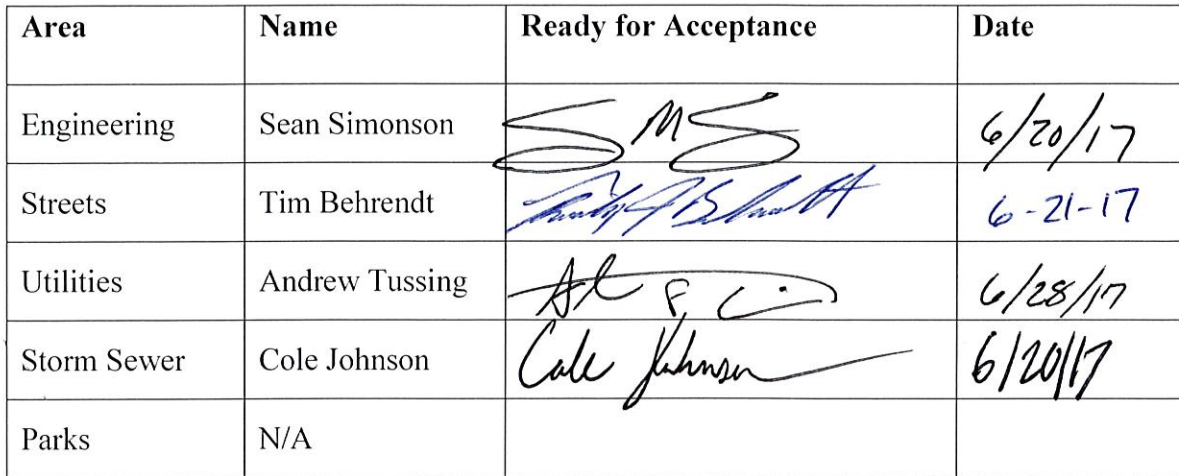 Area Name Ready for Acceptance Date
Engineering Sean Simonson SMS 6/20/17
Streets Tim Behrendt 6-21-17
Utilities Andrew Tussing 6/28/17
Storm Sewer Cole Johnson Cole Johnson 6/20/17
Parks N/A